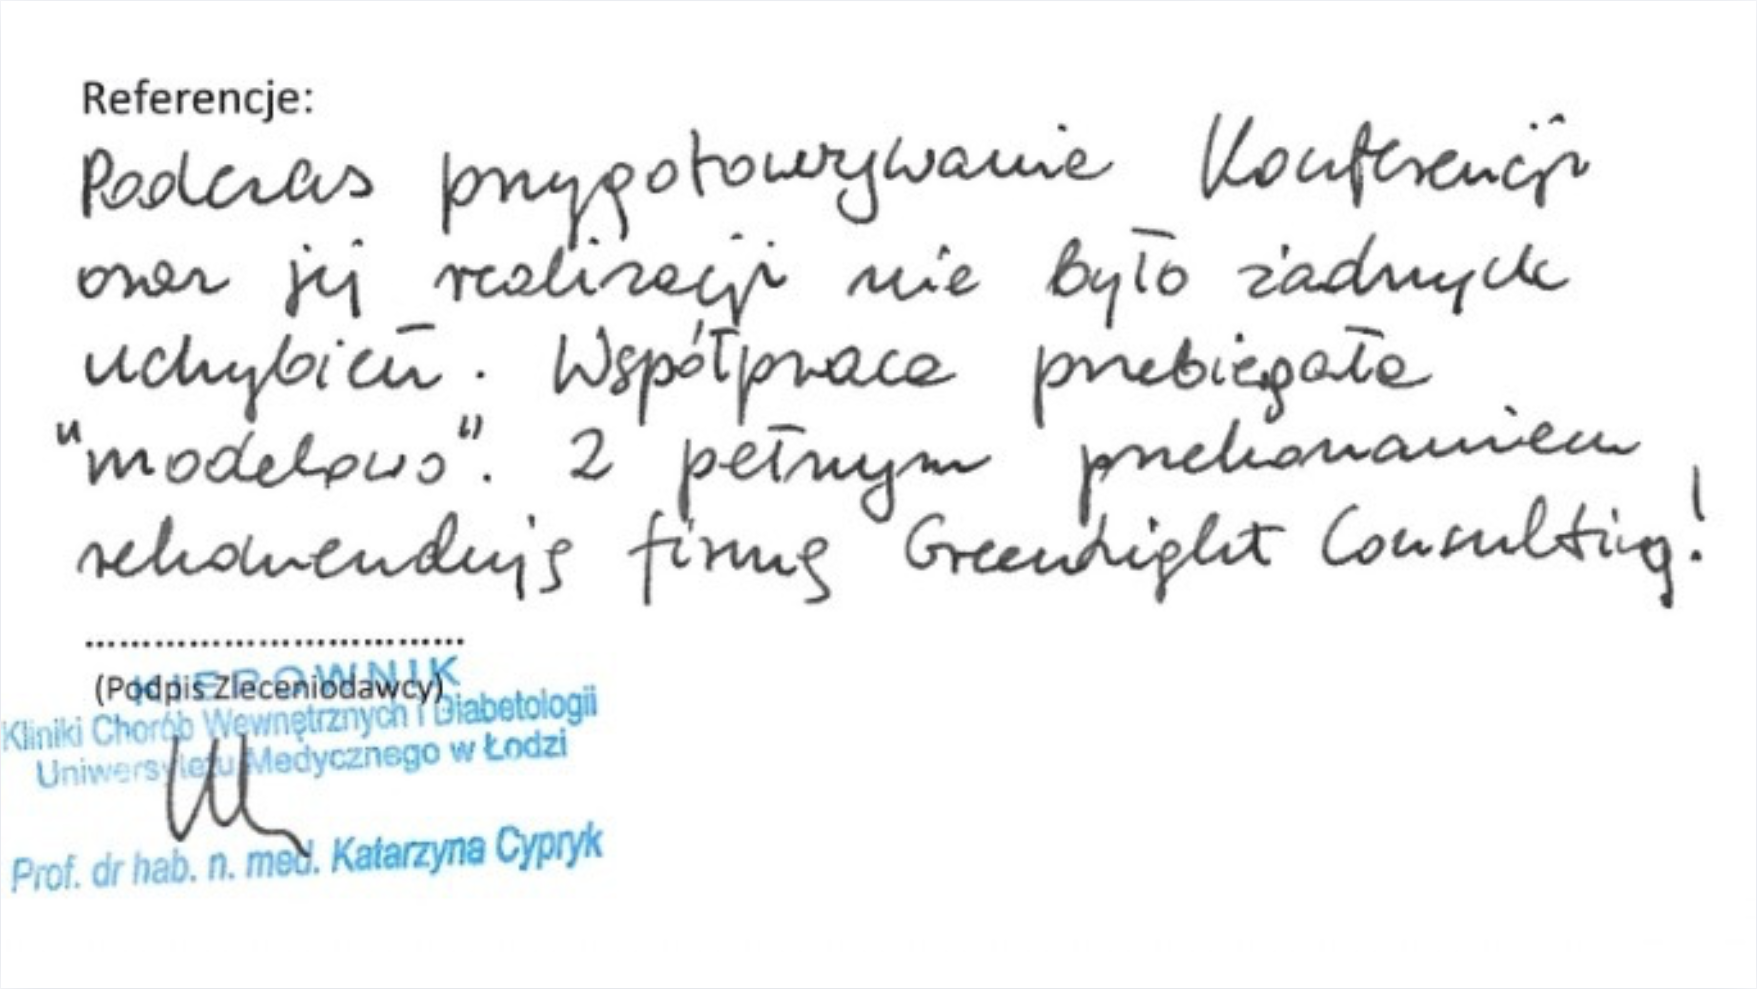 Referencje:
Podczas przygotowywania Konferencji
oraz jej realizacji nie było żadnych
uchybień. Współpraca przebiegała
"modelowo". Z pełnym przekonaniem
rekomenduję firmę GreenLight Consulting!
....................................
(Podpis Zleceniodawcy)
KIEROWNIK
Kliniki Chorób Wewnętrznych i Diabetologii
Uniwersytetu Medycznego w Łodzi
Prof. dr hab. n. med. Katarzyna Cypryk